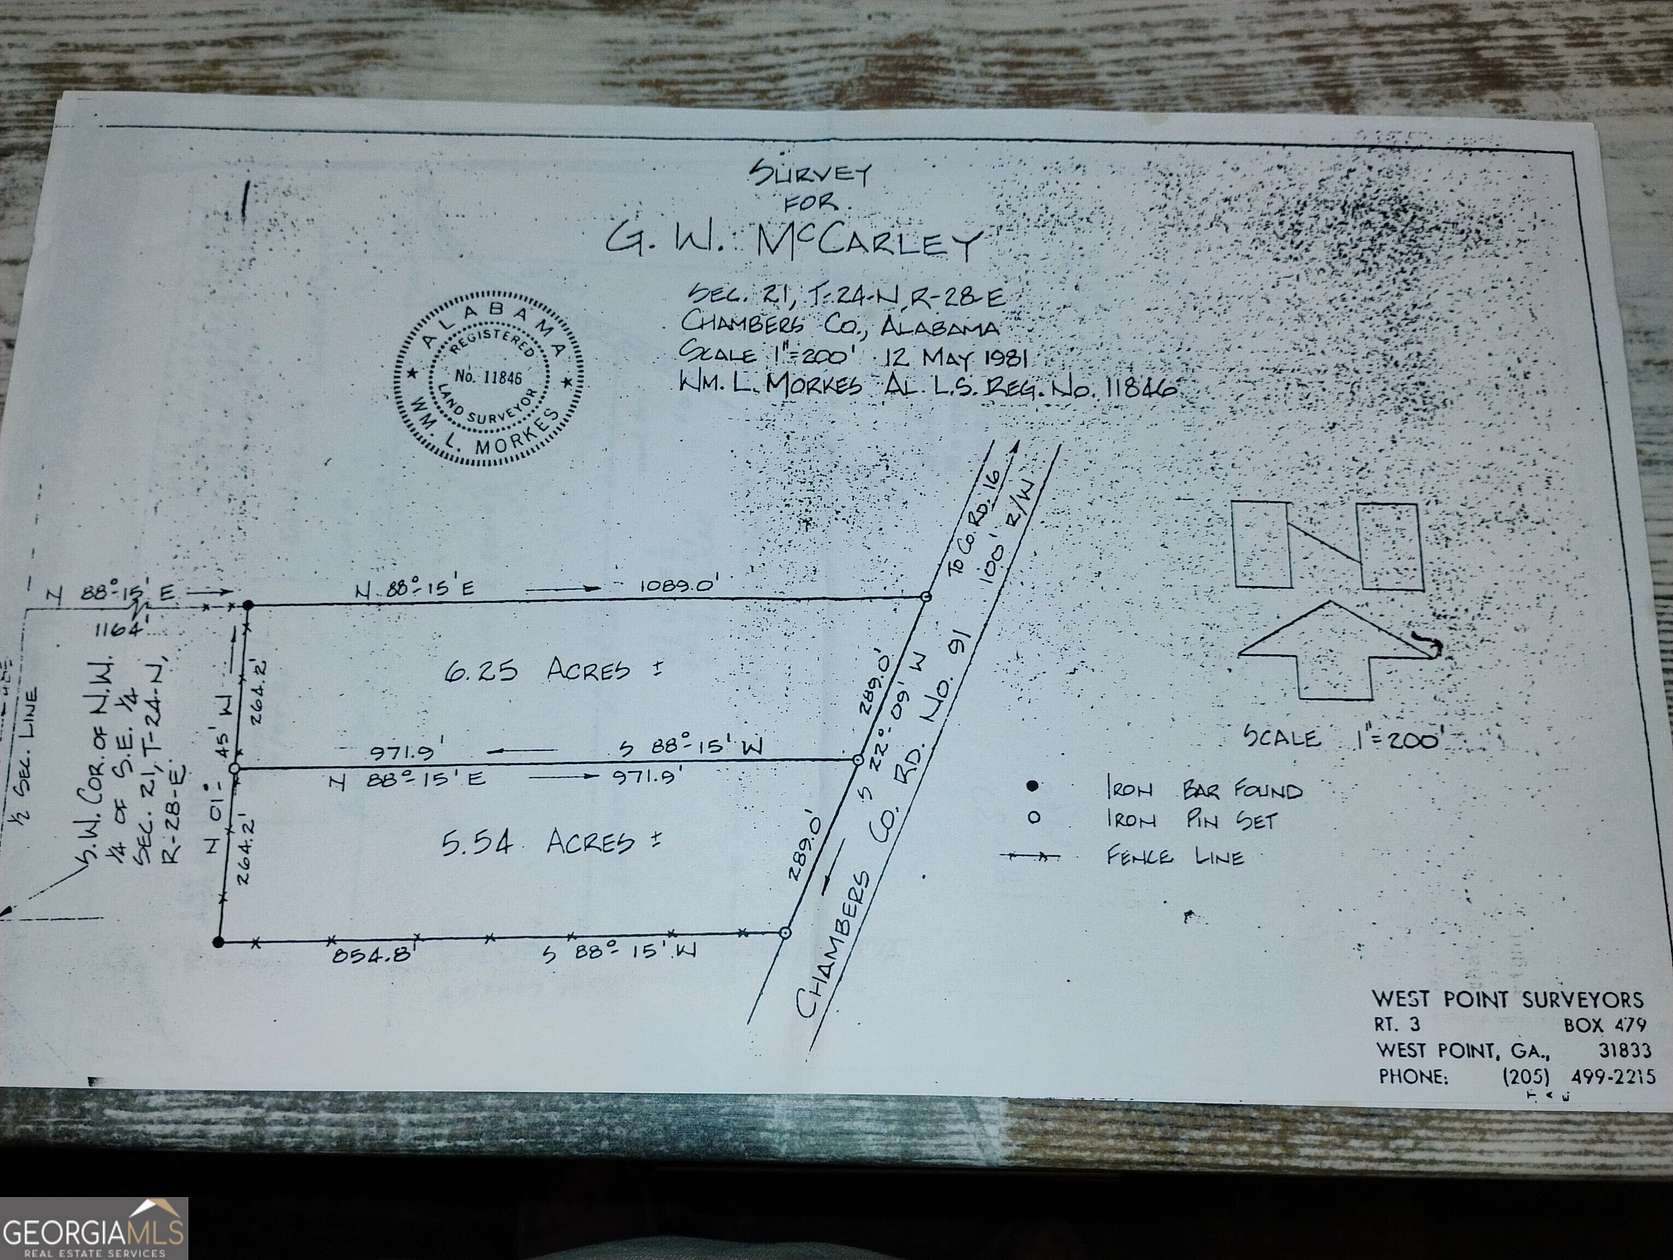 SURVEY
FOR
G. W. McCARLEY
SEC. 21, T-24-N, R-28-E
CHAMBERS CO., ALABAMA
SCALE 1"=200' 12 MAY 1981
WM. L. MORKES AL. L.S. REG. NO. 11846
ALABAMA
REGISTERED
No. 11846
LAND SURVEYOR
WM. L. MORKES
TO CO. RD. 16
100' R/W
N 88°-15' E
1164'
N 88°-15' E 1089.0'
6.25 ACRES ±
264.2'
289.0'
971.9' S 88°-15' W
N 88°-15' E 971.9'
5.54 ACRES ±
264.2'
289.0'
N 01°-45' W
S 22°-09' W
CHAMBERS CO. RD. NO. 91
854.8' S 88°-15' W
½ SEC. LINE
S.W. COR. OF N.W.
¼ OF S.E. ¼
SEC. 21, T-24-N,
R-28-E
N
SCALE 1"=200'
IRON BAR FOUND
IRON PIN SET
FENCE LINE
WEST POINT SURVEYORS
RT. 3 BOX 479
WEST POINT, GA., 31833
PHONE: (205) 499-2215
T. A. E.
GEORGIAMLS
REAL ESTATE SERVICES